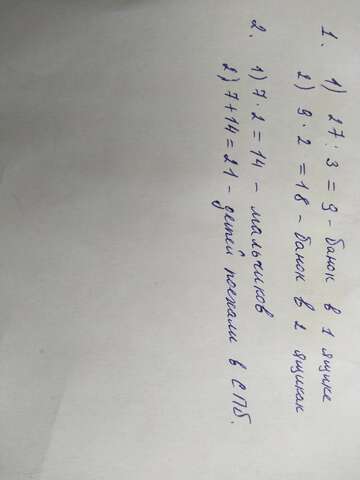 1. 1) 27 : 3 = 9 - банок в 1 ящике
2) 9 · 2 = 18 - банок в 2 ящиках
2. 1) 7 · 2 = 14 - мальчиков
2) 7 + 14 = 21 - детей поехали в СПб.